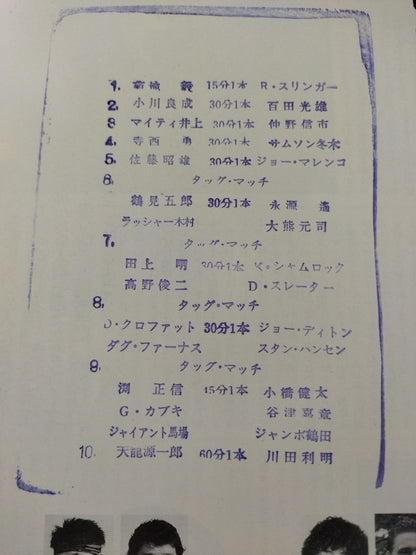 1. 菊地 毅 15分1本 R・スリンガー
2. 小川良成 30分1本 百田光雄
3 マイティ井上 30分1本 仲野信市
4. 寺西 勇 30分1本 サムソン冬木
5. 佐藤昭雄 30分1本 ジョー・マレンコ
6. タッグ・マッチ
鶴見五郎 30分1本 永源 遙
ラッシャー木村 大熊元司
7. タッグ・マッチ
田上 明 30分1本 K・シャムロック
高野俊二 D・スレーター
8. タッグ・マッチ
D・クロファット 30分1本 ジョー・ディトン
ダグ・ファーナス スタン・ハンセン
9. タッグ・マッチ
渕 正信 45分1本 小橋健太
G・カブキ 谷津嘉章
ジャイアント馬場 ジャンボ鶴田
10. 天龍源一郎 60分1本 川田利明